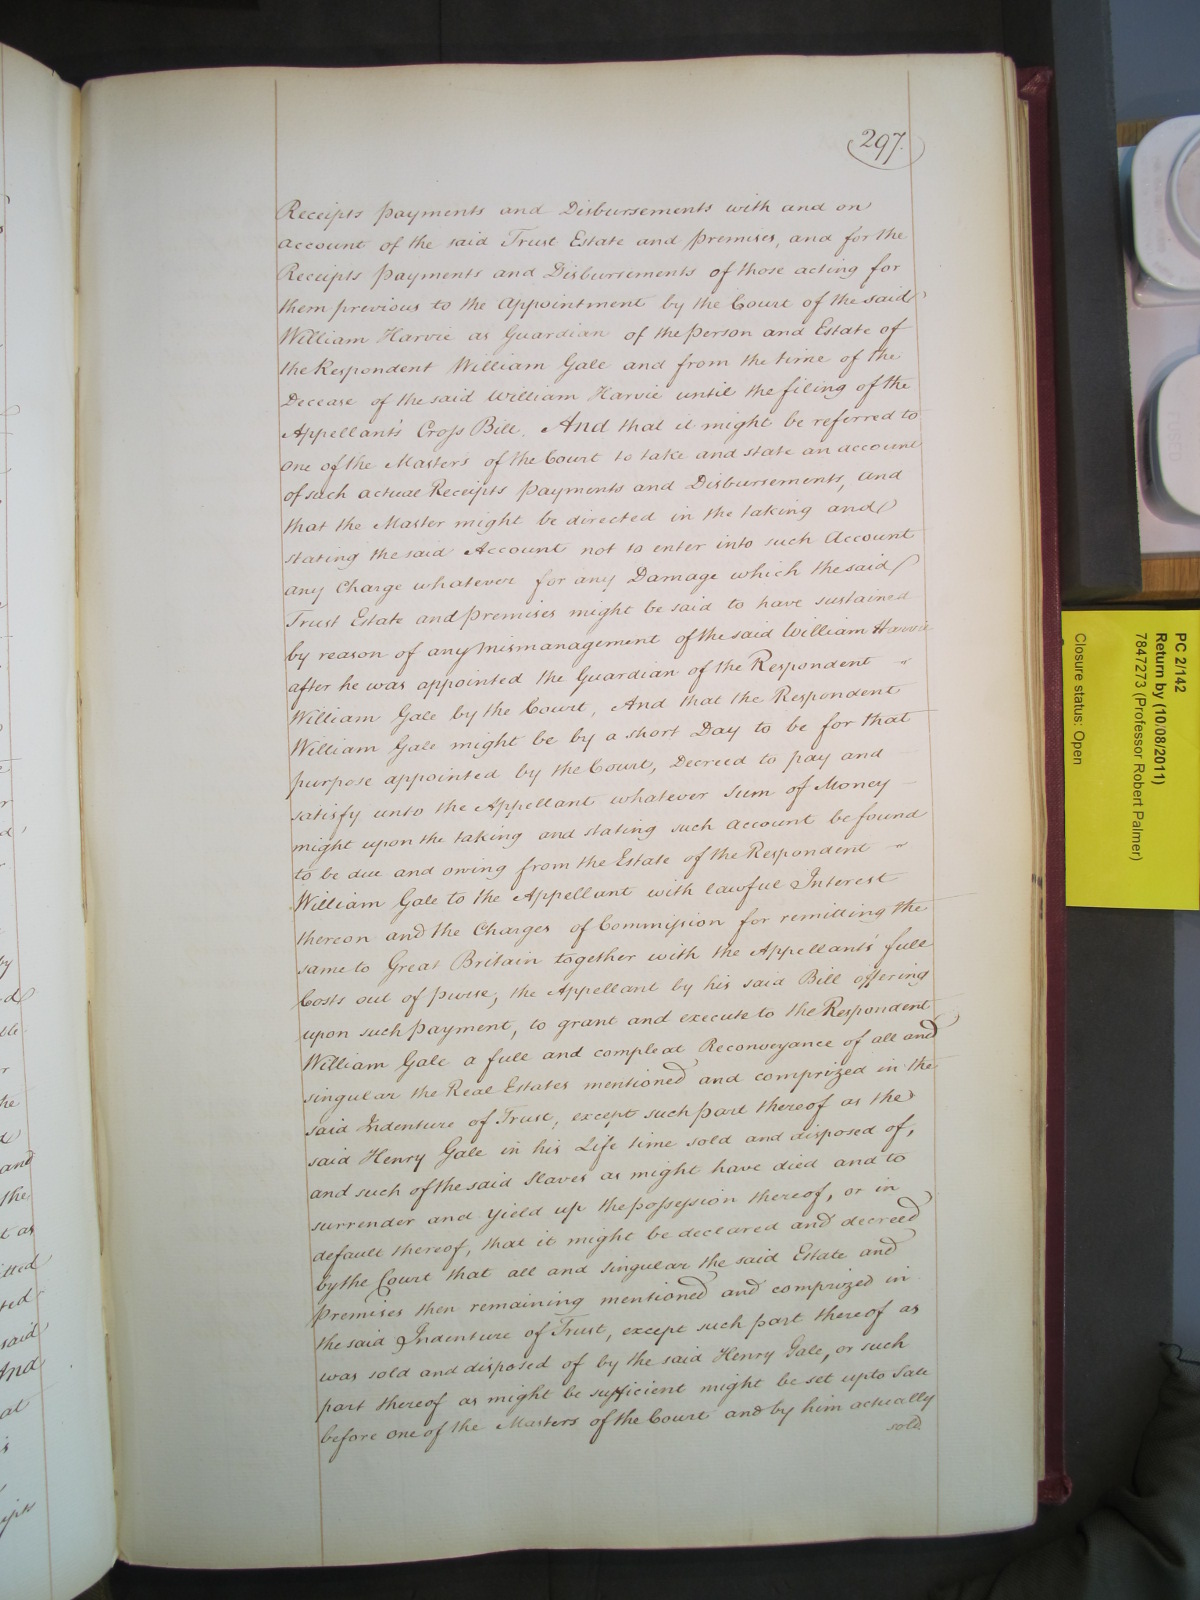 297.
Receipts payments and Disbursements with and on
account of the said Trust Estate and premises, and for the
Receipts payments and Disbursements of those acting for
them previous to the Appointment by the Court of the said
William Harvie as Guardian of the person and Estate of
the Respondent William Gale and from the time of the
Decease of the said William Harvie until the filing of the
Appellant's Cross Bill. And that it might be referred to
one of the Masters of the Court to take and state an account
of such actual Receipts payments and Disbursements, and
that the Master might be directed in the taking and
stating the said Account not to enter into such Account
any Charge whatever for any Damage which the said
Trust Estate and premises might be said to have sustained
by reason of any mismanagement of the said William Harvie
after he was appointed the Guardian of the Respondent "
William Gale by the Court, And that the Respondent
William Gale might be by a short Day to be for that
purpose appointed by the Court, Decreed to pay and
satisfy unto the Appellant whatever sum of Money –
might upon the taking and stating such account be found
to be due and owing from the Estate of the Respondent "
William Gale to the Appellant with lawful Interest
thereon and the Charges of Commission for remitting the
same to Great Britain together with the Appellant's full
Costs out of purse, the Appellant by his said Bill offering
upon such payment, to grant and execute to the Respondent
William Gale a full and compleat Reconveyance of all and
singular the Real Estates mentioned and comprized in the
said Indenture of Trust, except such part thereof as the
said Henry Gale in his Life time sold and disposed of,
and such of the said Slaves as might have died and to
surrender and yield up the possession thereof, or in
default thereof, that it might be declared and decreed
by the Court that all and singular the said Estate and
Premises then remaining mentioned and comprized in
the said Indenture of Trust, except such part thereof as
was sold and disposed of by the said Henry Gale, or such
part thereof as might be sufficient might be set up to Sale
before one of the Masters of the Court and by him actually
sold
PC 2/142
Return by (10/08/2011)
7847273 (Professor Robert Palmer)
Closure status: Open